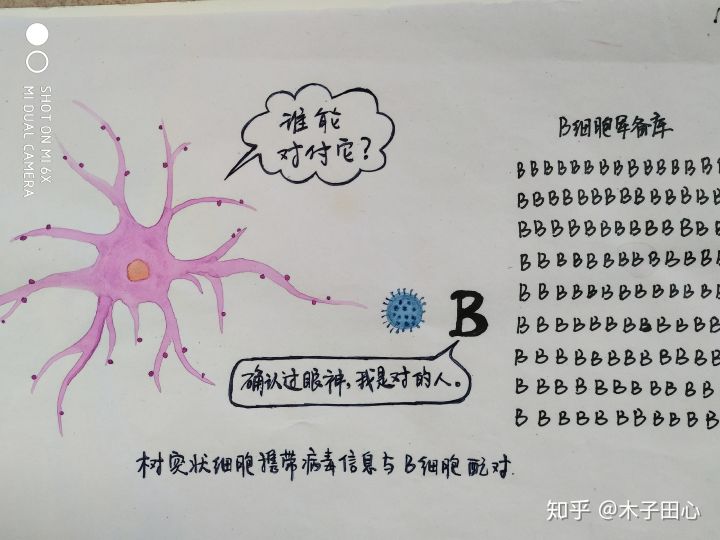 SHOT ON MI 6X
MI DUAL CAMERA
谁能
对付它?
B细胞军备库
BBBBBBBBBBBBBBB
BBBBBBBBBBBBBB
BBBBBBBBBBBBBB
BBBBBBBBBBBBBB
BBBBBBBBBBBBBB
BBBBBBBBBBBBB
BBBBBBBBBBBBB
BBBBBBBBBBBBB
BBBBBBBBBBBBB
B
确认过眼神，我是对的人。
树突状细胞携带病毒信息与B细胞配对.
知乎 @木子田心